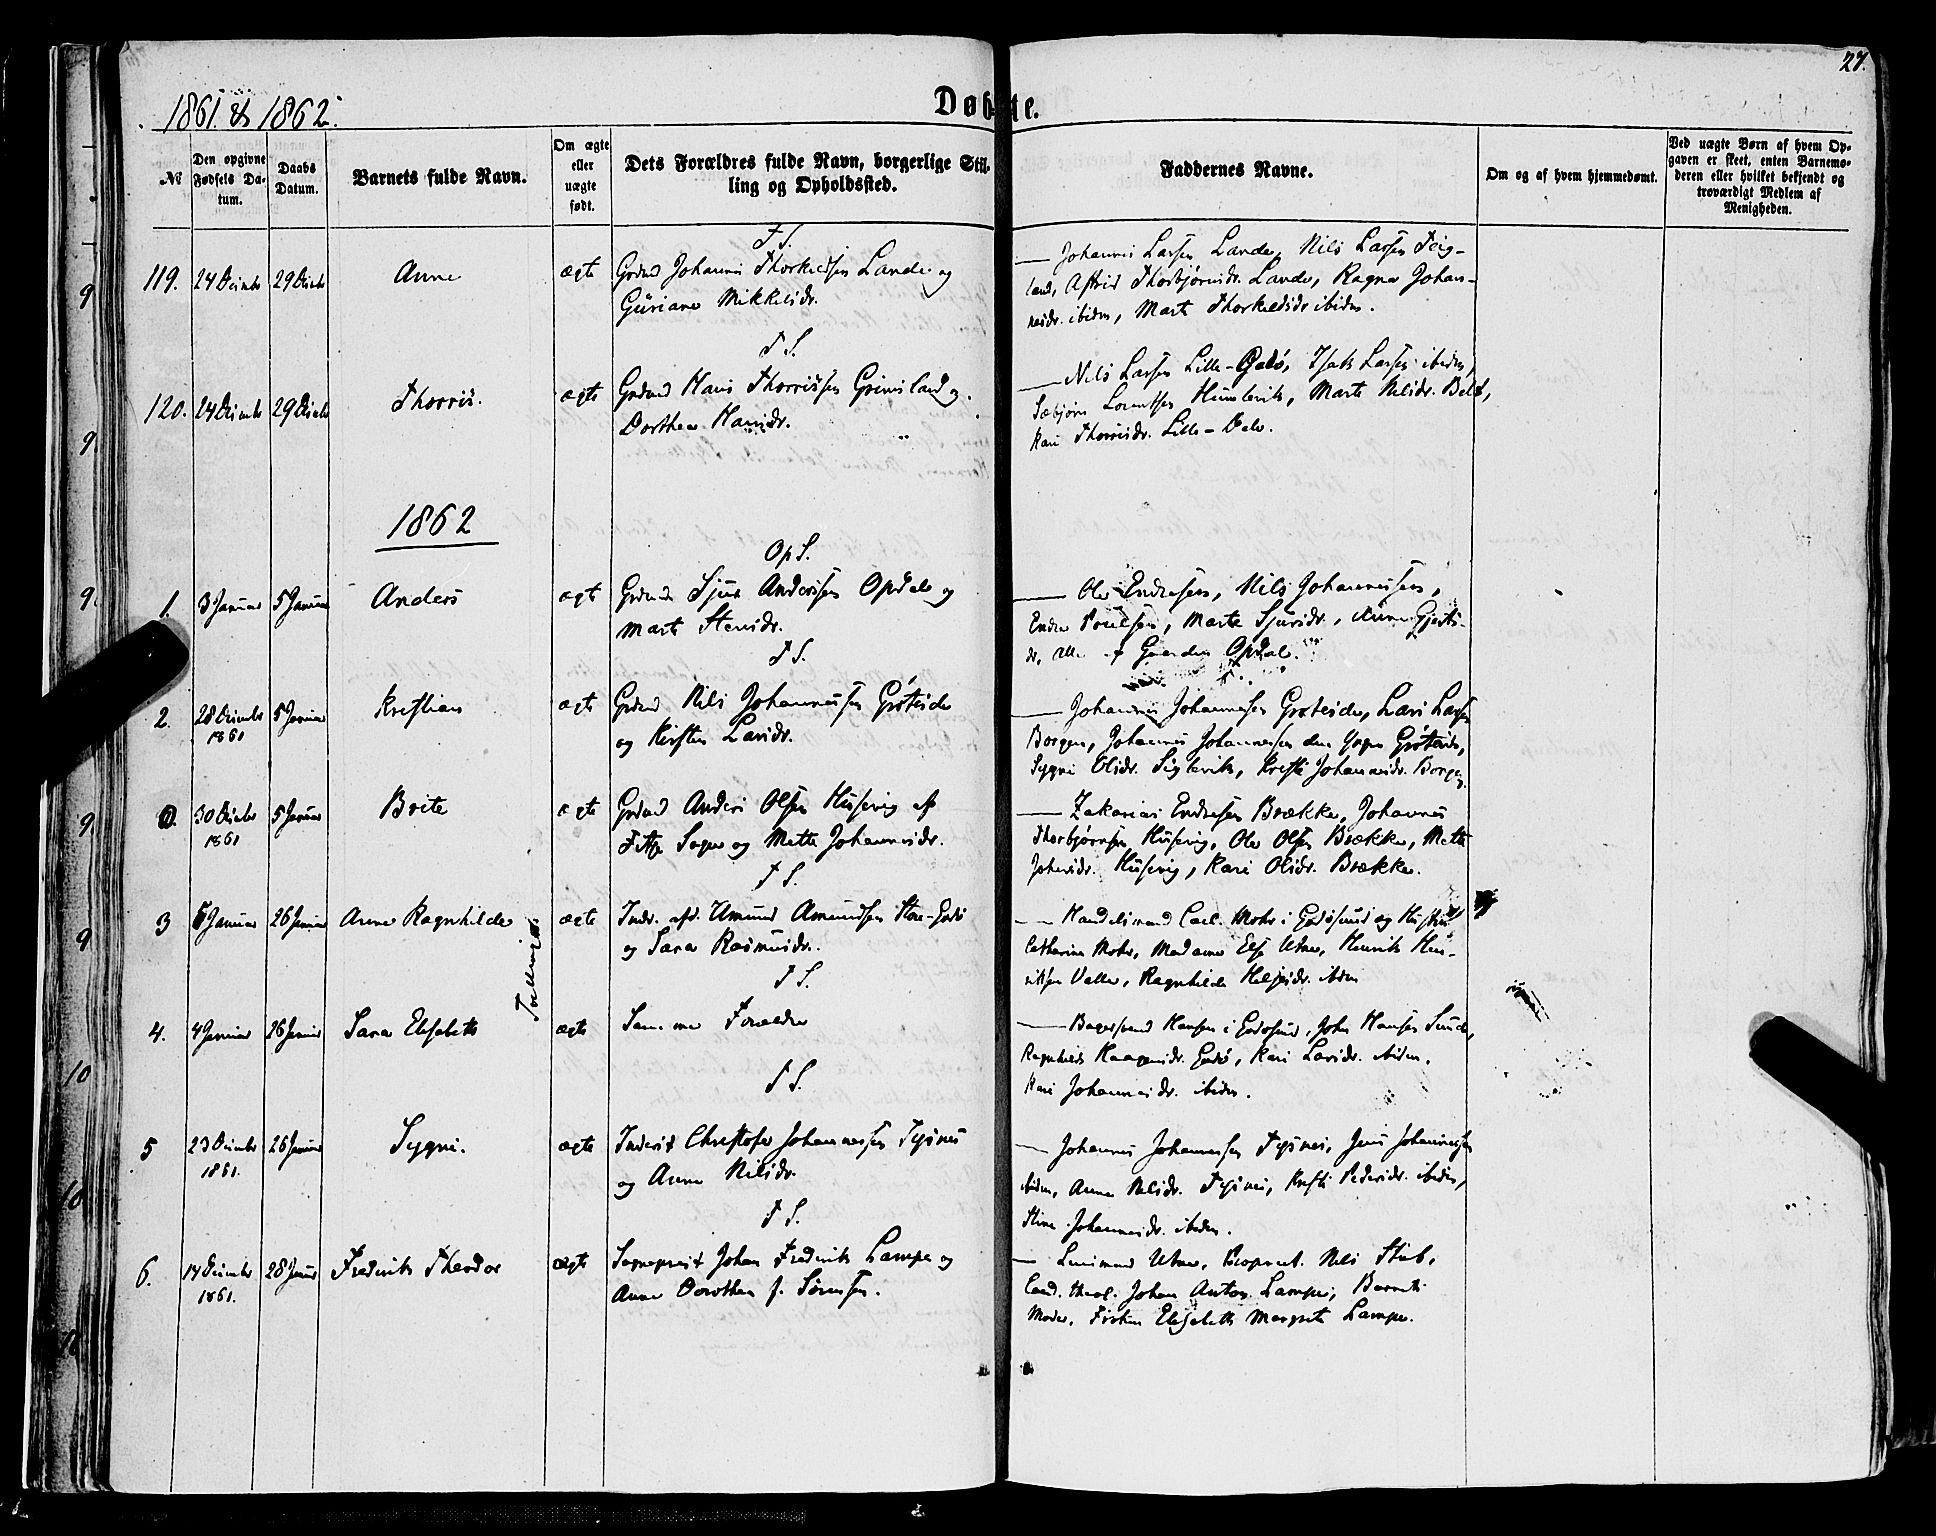 1861 & 1862.
Døbte.
27.
№
Den opgivne Fødsels Datum.
Daabs Datum.
Barnets fulde Navn.
Om ægte eller uægte født.
Dets Forældres fulde Navn, borgerlige Stilling og Opholdssted.
Faddernes Navne.
Om og af hvem hjemmedømt.
Ved uægte Børn af hvem Opgaven er skeet, enten Barnemoderen eller hvilket bekjendt og troværdigt Medlem af Menigheden.
T. S.
119. 24 Decmbr 29 Decbr Anne ægte Grdmd Johannis Thorkildsen Lande og
Guriane Mikkelsdr.
Johannis Larsen Lande, Nils Larsen Teig-
land, Astrid Thorbjørnsdr. Lande, Ragna Johan-
nesdr. ibidm, Marte Thorkildsdr ibidm.
T S.
120. 24 Decmbr 29 Decbr Thorris. ægte Grdmd Hans Thorrissen Grimsland og
Dorthea Hansdr.
Nils Larsen Lille-Godø, Isak Larsen ibidm,
Sæbjørn Lorentsen Humlevik, Marte Nilsdr.
Kari Thorrisdr. Lille-
1862
Op S.
1. 3 Januar 5 Januar Anders ægt Grdmd Sjur Anderssen Opdal og
Marte Stensdr.
Ole Endresen, Nils Johannessen,
Endre Poulsen, Marta Sjursdr., Anna Gjerts-
dr, alle af Gaarden Opdal.
T S.
2. 28 Decmbr 1861 5 Januar Kristian ægte Grdmd Nils Johannessen Gröteide
og Kirsten Larsdr.
Johannes Johannesen Gröteide, Lars Larsen
Borgen, Johannis Johannessen den Yngre Gröteide,
Sygni Olsdr. Siglevik, Kristi Johannesdr. Borgen
0. 30 Decmbr 1861 5 Januar Brite ægte Grdmd Anders Olsen Husevig af
Fitje Sogn og Mette Johannesdr.
Zakarias Endresen Brække, Johannes
Thorbjørnsen Husevig, Ole Olsen Brække, Mette
Johansdr. Husevig, Kari Olsdr. Brække.
T S.
3 6 Januar 26 Januar Anne Ragnhilde ægte Indr. afd. Amund Amundsen Store-Godø
og Sara Rasmusdr.
Tvillinger
Handelsmand Carl Mohr i Godøsund og Hustru
Catharina Mohr, Madame Else Utne, Henrik Hen-
riksen Valle, Ragnhilde Helgesdr. ibidm
T S.
4. 4 Januar 26 Januar Sara Elisabeth ægte Samme Forældre
Hansen i Godøsund, John Hansen Sunde,
Ragnhilde Haagensdr. Godø, Kari Larsdr. ibidm.
Kari Johannesdr. ibidm.
T S.
5 23 Decmbr 1861. 26 Januar Sygni. ægte Inderst Christofer Johannessen Tysnes
og Anna Nilsdr.
Johannes Johannessen Tysnes, Jens Johannessen
ibidm, Anna Nilsdr. Tysnes, Kristi Pedersdr. ibidm,
Stine Johannesdr. ibidm.
T S.
6. 14 Decmbr 1861. 28 Januar Frederik Theodor ægte Sogneprest Johan Frederik Lampe og
Anne Dorothea f. Sörensen.
Lensmand Utne, Nils Stub,
Cand. theol. Johan Anton Lampe, Barnets
Moder, Frøken Elisabeth Margrete Lampe.